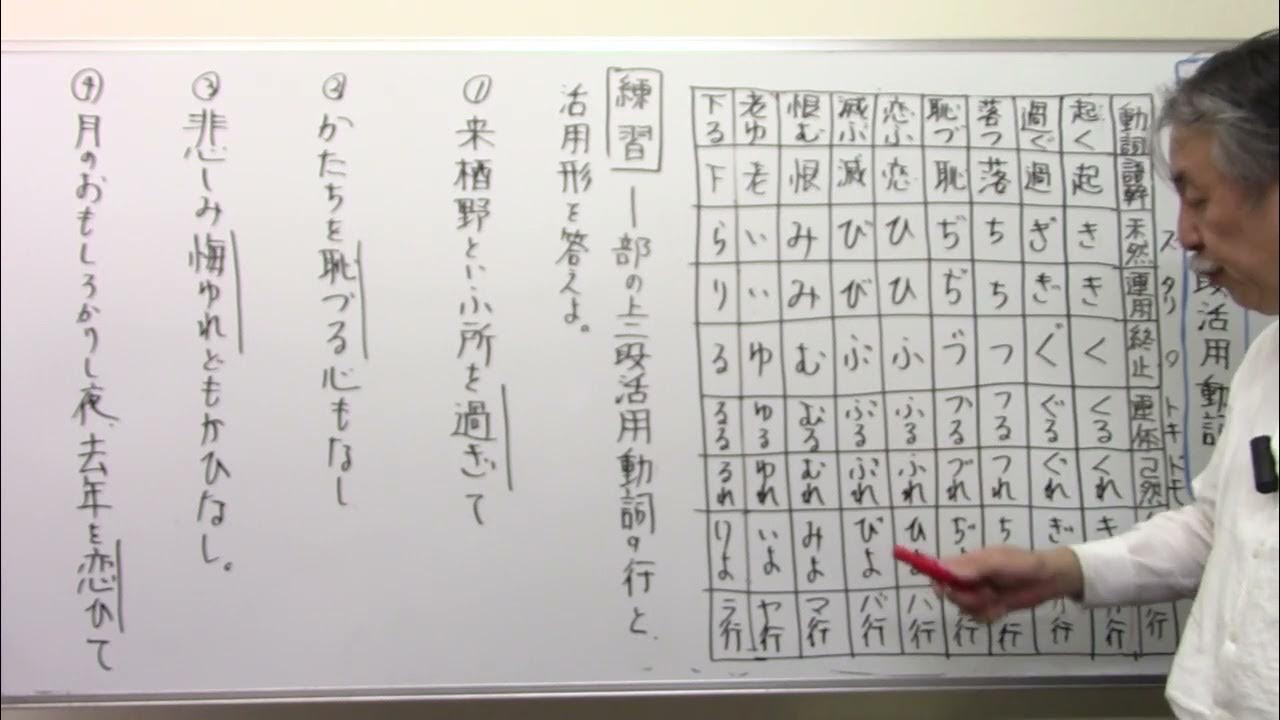 段活用動詞
ズ タリ 。 トキ トモ
動詞 語幹 未然 連用 終止 連体 已然 行
起く 起 き き く くる くれ き
過ぐ 過 ぎ ぎ ぐ ぐる ぐれ ぎ 行
落つ 落 ち ち つ つる つれ ち 行
恥づ 恥 ぢ ぢ づ づる づれ ぢ 行
恋ふ 恋 ひ ひ ふ ふる ふれ ひよ ハ行
滅ぶ 滅 び び ぶ ぶる ぶれ びよ バ行
恨む 恨 み み む むる むれ みよ マ行
老ゆ 老 い い ゆ ゆる ゆれ いよ ヤ行
下る 下 ら り る るる るれ りよ ラ行
練習 ―部の上二段活用動詞の行と、
活用形を答えよ。
① 来栖野といふ所を過ぎて
② かたちを恥づる心もなし
③ 悲しみ悔ゆれどもかひなし。
④ 月のおもしろかりし夜、去年を恋ひて